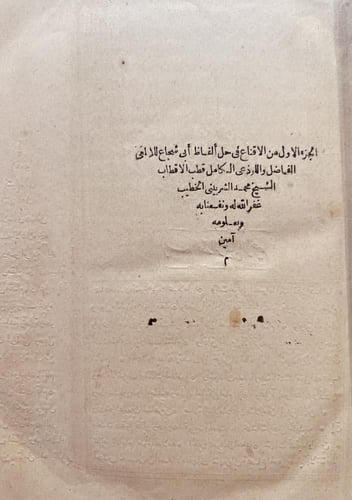 الجزء الاول من الاقناع فى حل ألفاظ أبى شجاع للامام
الفاضل واللوذعى الكامل قطب الاقطاب
الشيخ محمد الشربينى الخطيب
غفر الله له ونفعنا به
وبعلومه
آمين
م